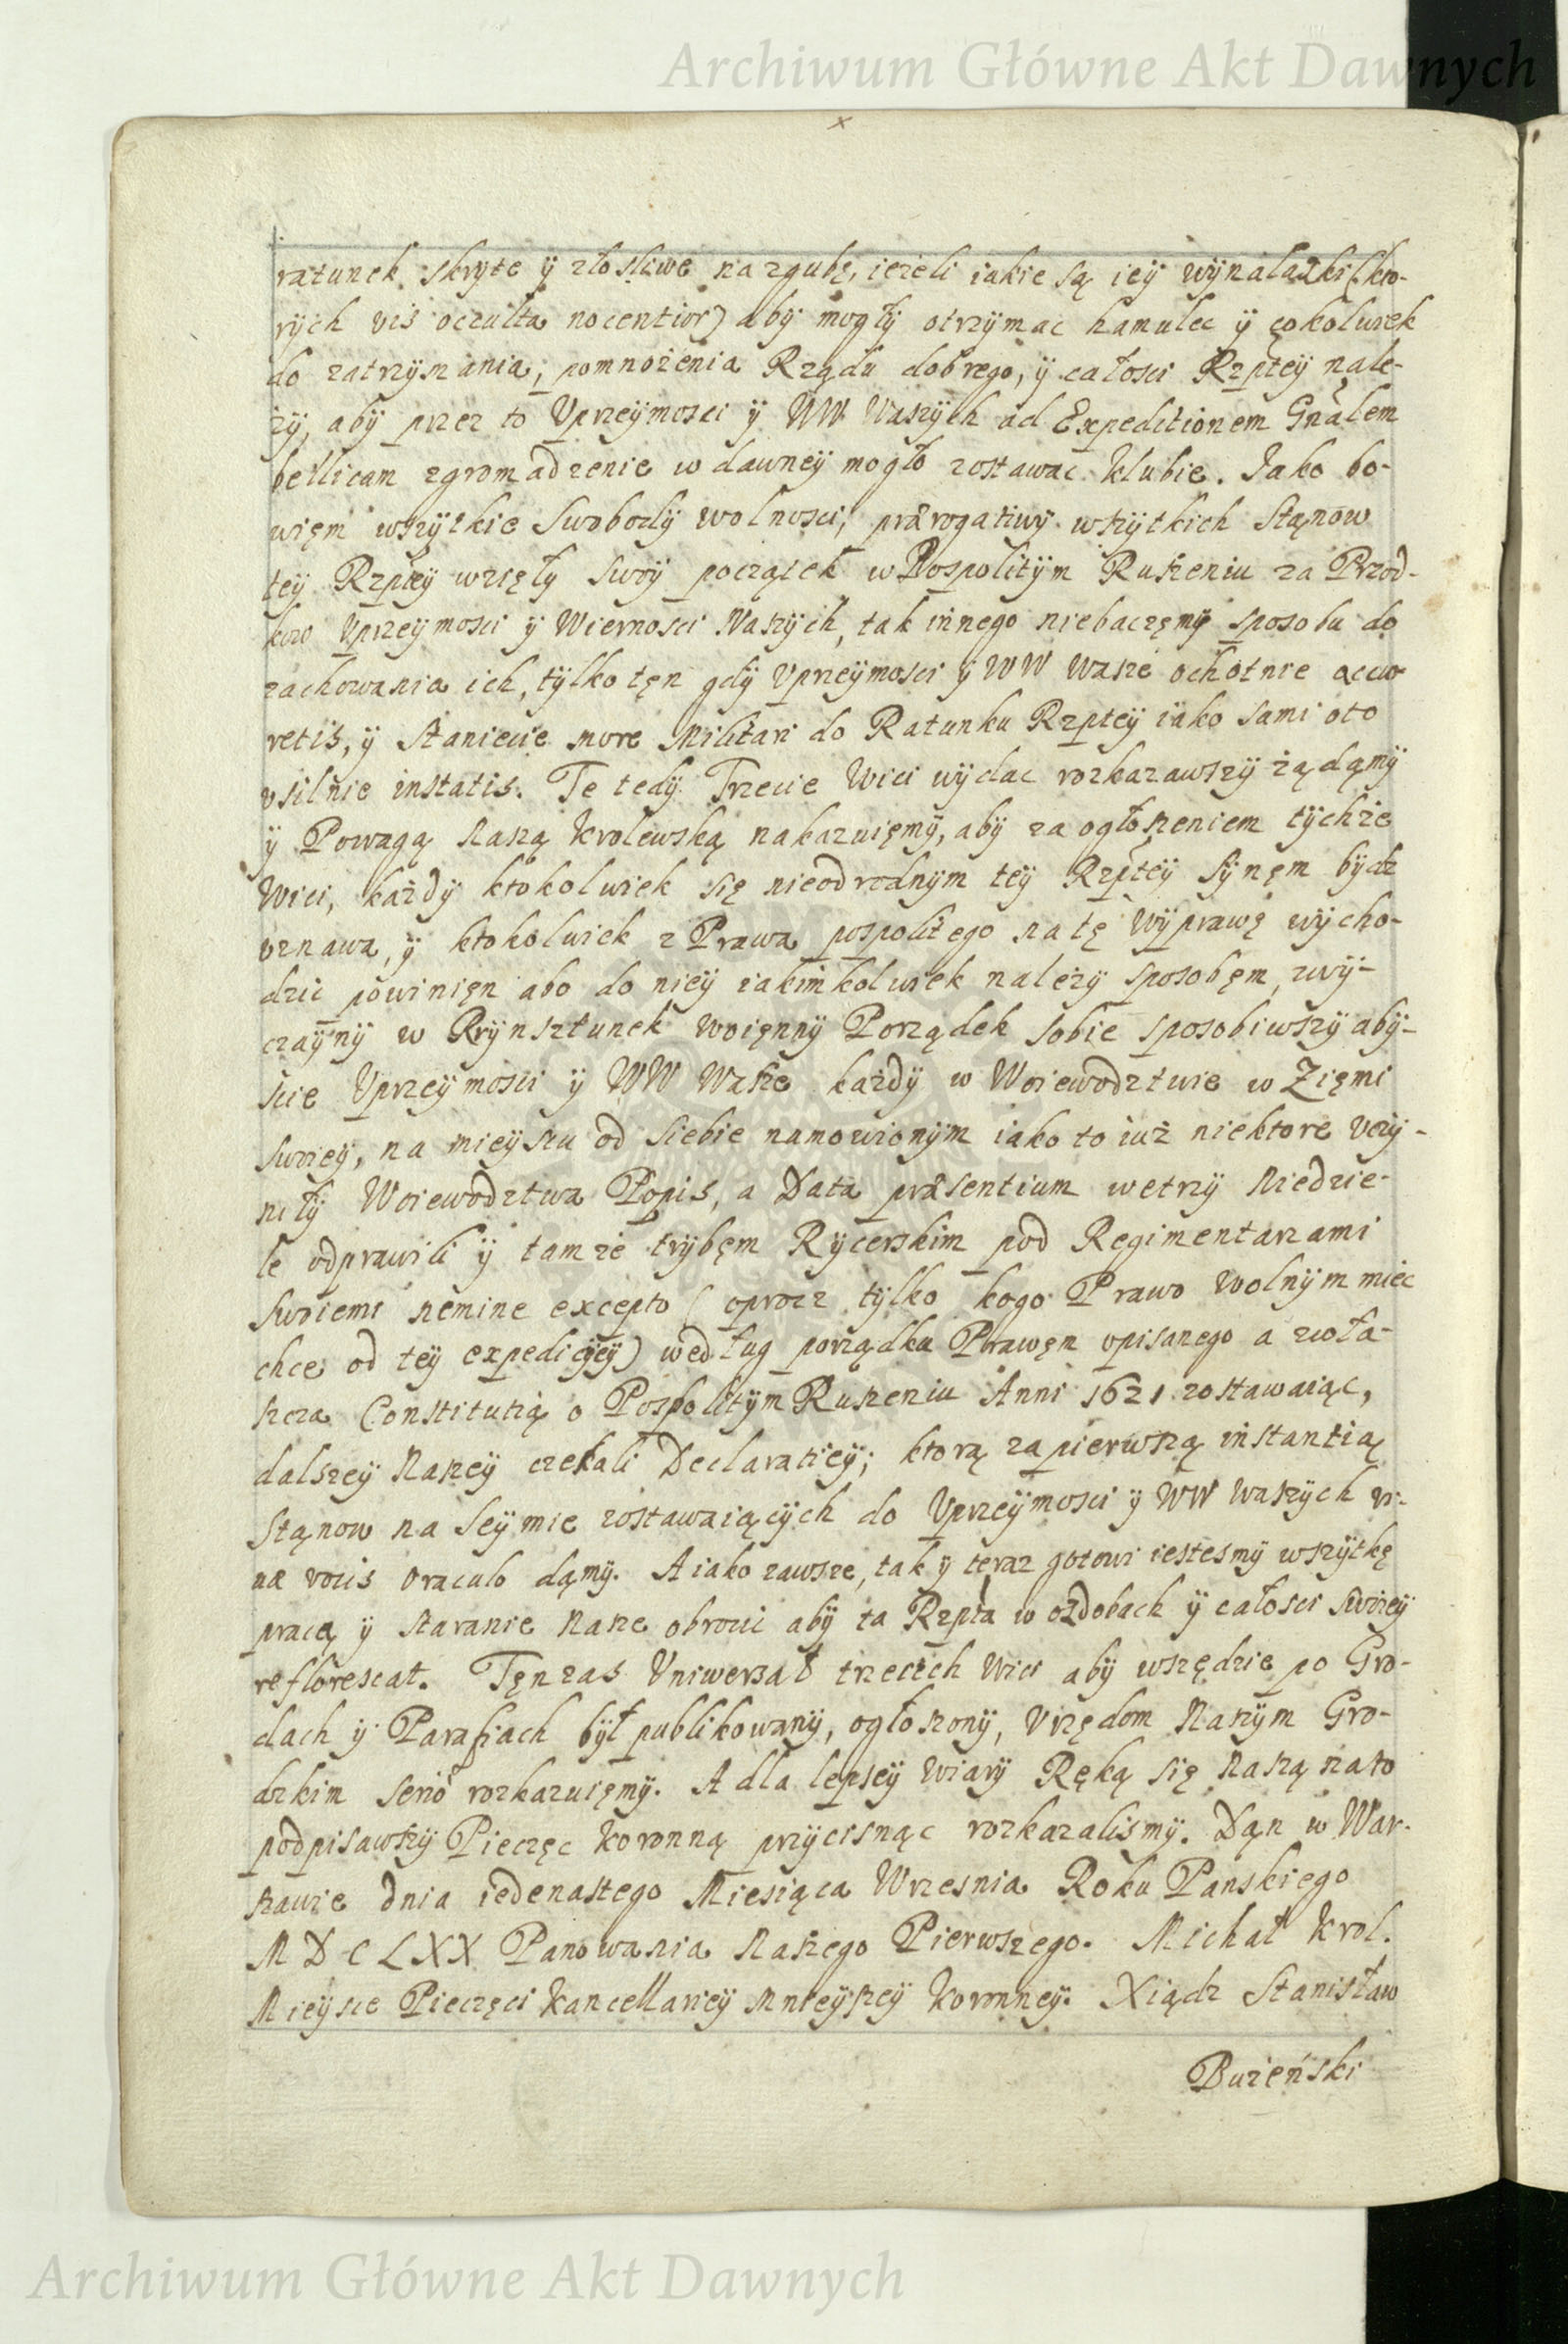 Archiwum Główne Akt Dawnych
ratunek skryte ÿ złosliwe na zgubę, iezeli iakie są ieÿ wÿnalazki (kto-
rÿch vis occulta nocentior) abÿ mogłÿ otrzÿmac hamulec ÿ cokolwiek
do zatrzÿmania, pomnożenia Rządu dobrego, ÿ całosci Rzpteÿ nale-
zÿ, abÿ przez to Vprzeÿmosci ÿ WW Waszÿch ad Expeditionem Gnalem
bellicam zgromadzenie w dawneÿ mogło zostawac klubie. Jako bo-
więm wszÿtkie Swobodÿ wolnosci, prærogatiwÿ wszÿtkich Stąnow
teÿ Rzpteÿ wzięłÿ swoÿ początek w Pospolitÿm Ruszeniu za Przod-
kow Vprzeÿmosci ÿ Wiernosci Waszÿch, tak innego niebaczęmÿ sposobu do
zachowania ich, tÿlko tęn gdÿ Vprzeÿmosci ÿ WW Wasze ochotnie accur
retis, ÿ staniecie more Militari do Ratunku Rzpteÿ iako sami oto
vsilnie instatis. Te tedÿ Trzecie Wici wÿdac rozkazawszÿ żądąmÿ
ÿ Powagą Naszą Krolewską nakazuięmÿ, abÿ za ogłoszeniem tÿchże
Wici, każdÿ ktokolwiek się nieodrodnÿm teÿ Rzpteÿ Sÿnęm bÿdz
vznawa, ÿ ktokolwiek z Prawa pospolitego na tę Wÿprawę wÿcho-
dzic powinięn abo do nieÿ iakimkolwiek należÿ sposobęm, zwÿ-
czaÿnÿ w Rÿnsztunek woięnnÿ Porządek sobie sposobiwszÿ abÿ-
scie Vprzeÿmosci ÿ WW Wasze każdÿ w Woiewodztwie w Zięmi
swoieÿ, na mieÿscu od siebie namowionÿm iako to iuż niektore vczÿ-
niłÿ Woiewodztwa Popis, a Data præsentium wetrzÿ Niedzie-
le odprawili ÿ tamże trÿbęm Rÿcerskim pod Regimentarzami
swoiemi nemine excepto (oprocz tÿlko kogo Prawo wolnÿm miec
chce od teÿ expedicÿeÿ) według porządku Prawęn opisanego a zwła-
szcza Constitutią o Pospolitÿm Ruszeniu Anni 1621 zostawaiąc,
dalszeÿ Naszeÿ czekali Declaratieÿ; ktorą za pierwszą instantią
Stąnow na Seÿmie zostawaiącÿch do Vprzeÿmosci ÿ WW Waszÿch vi-
uæ vocis oraculo dąmÿ. A iako zawsze, tak ÿ teraz gotowi iestesmÿ wszÿtkę
pracą ÿ staranie Nasze obrocic abÿ ta Rzpta w ozdobach ÿ całosci swoieÿ
reflorescat. Tęn zas Vniwersał trzecich Wici abÿ wszędzie po Gro-
dach ÿ Parafiach bÿł publikowanÿ, ogłoszonÿ, Vrzędom Naszÿm Gro-
dzkim serio rozkazuięmÿ. A dla lepseÿ Wiarÿ Ręką się Naszą na to
podpisawszÿ Pieczęc Koronną przÿcisnąc rozkazalismÿ. Dąn w War-
szawie dnia iedenastego Miesiąca Wrzesnia Roku Panskiego
MDCLXX Panowania Naszego Pierwszego. Michał Krol.
Mieÿsce Pieczęci Kancellarieÿ Mnieÿszeÿ Koronneÿ. Xiądz Stanisław
Bużeński
Archiwum Główne Akt Dawnych